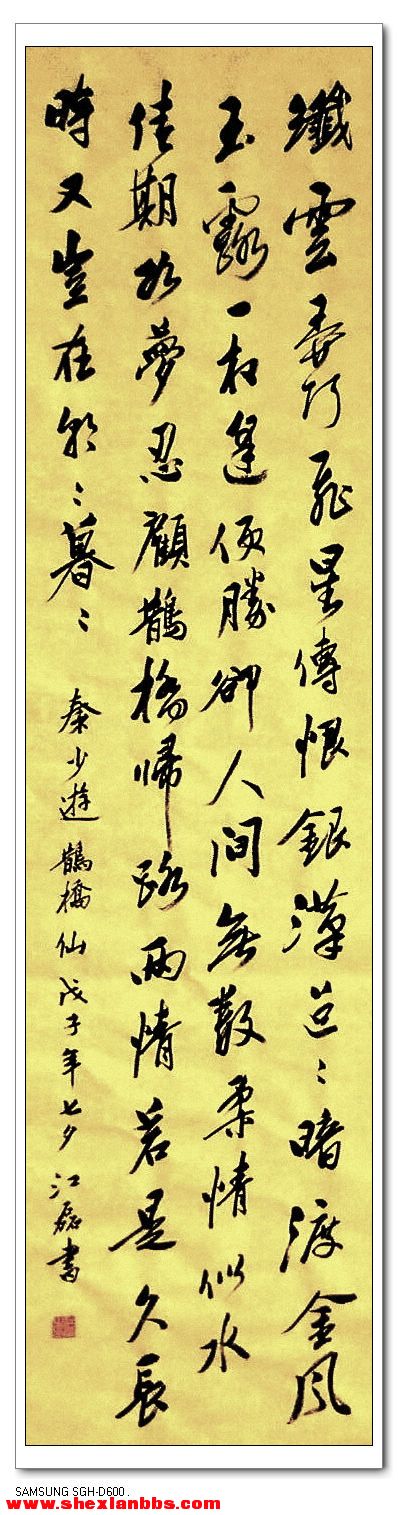 纖雲弄巧飛星傳恨銀漢迢〻暗渡金風
玉露一相逢便勝卻人間無數柔情似水
佳期如夢忍顧鵲橋歸路兩情若是久長
時又豈在朝〻暮〻
秦少遊鵲橋仙戊子年七夕江磊書
SAMSUNG SGH-D600.
www.shexianbbs.com